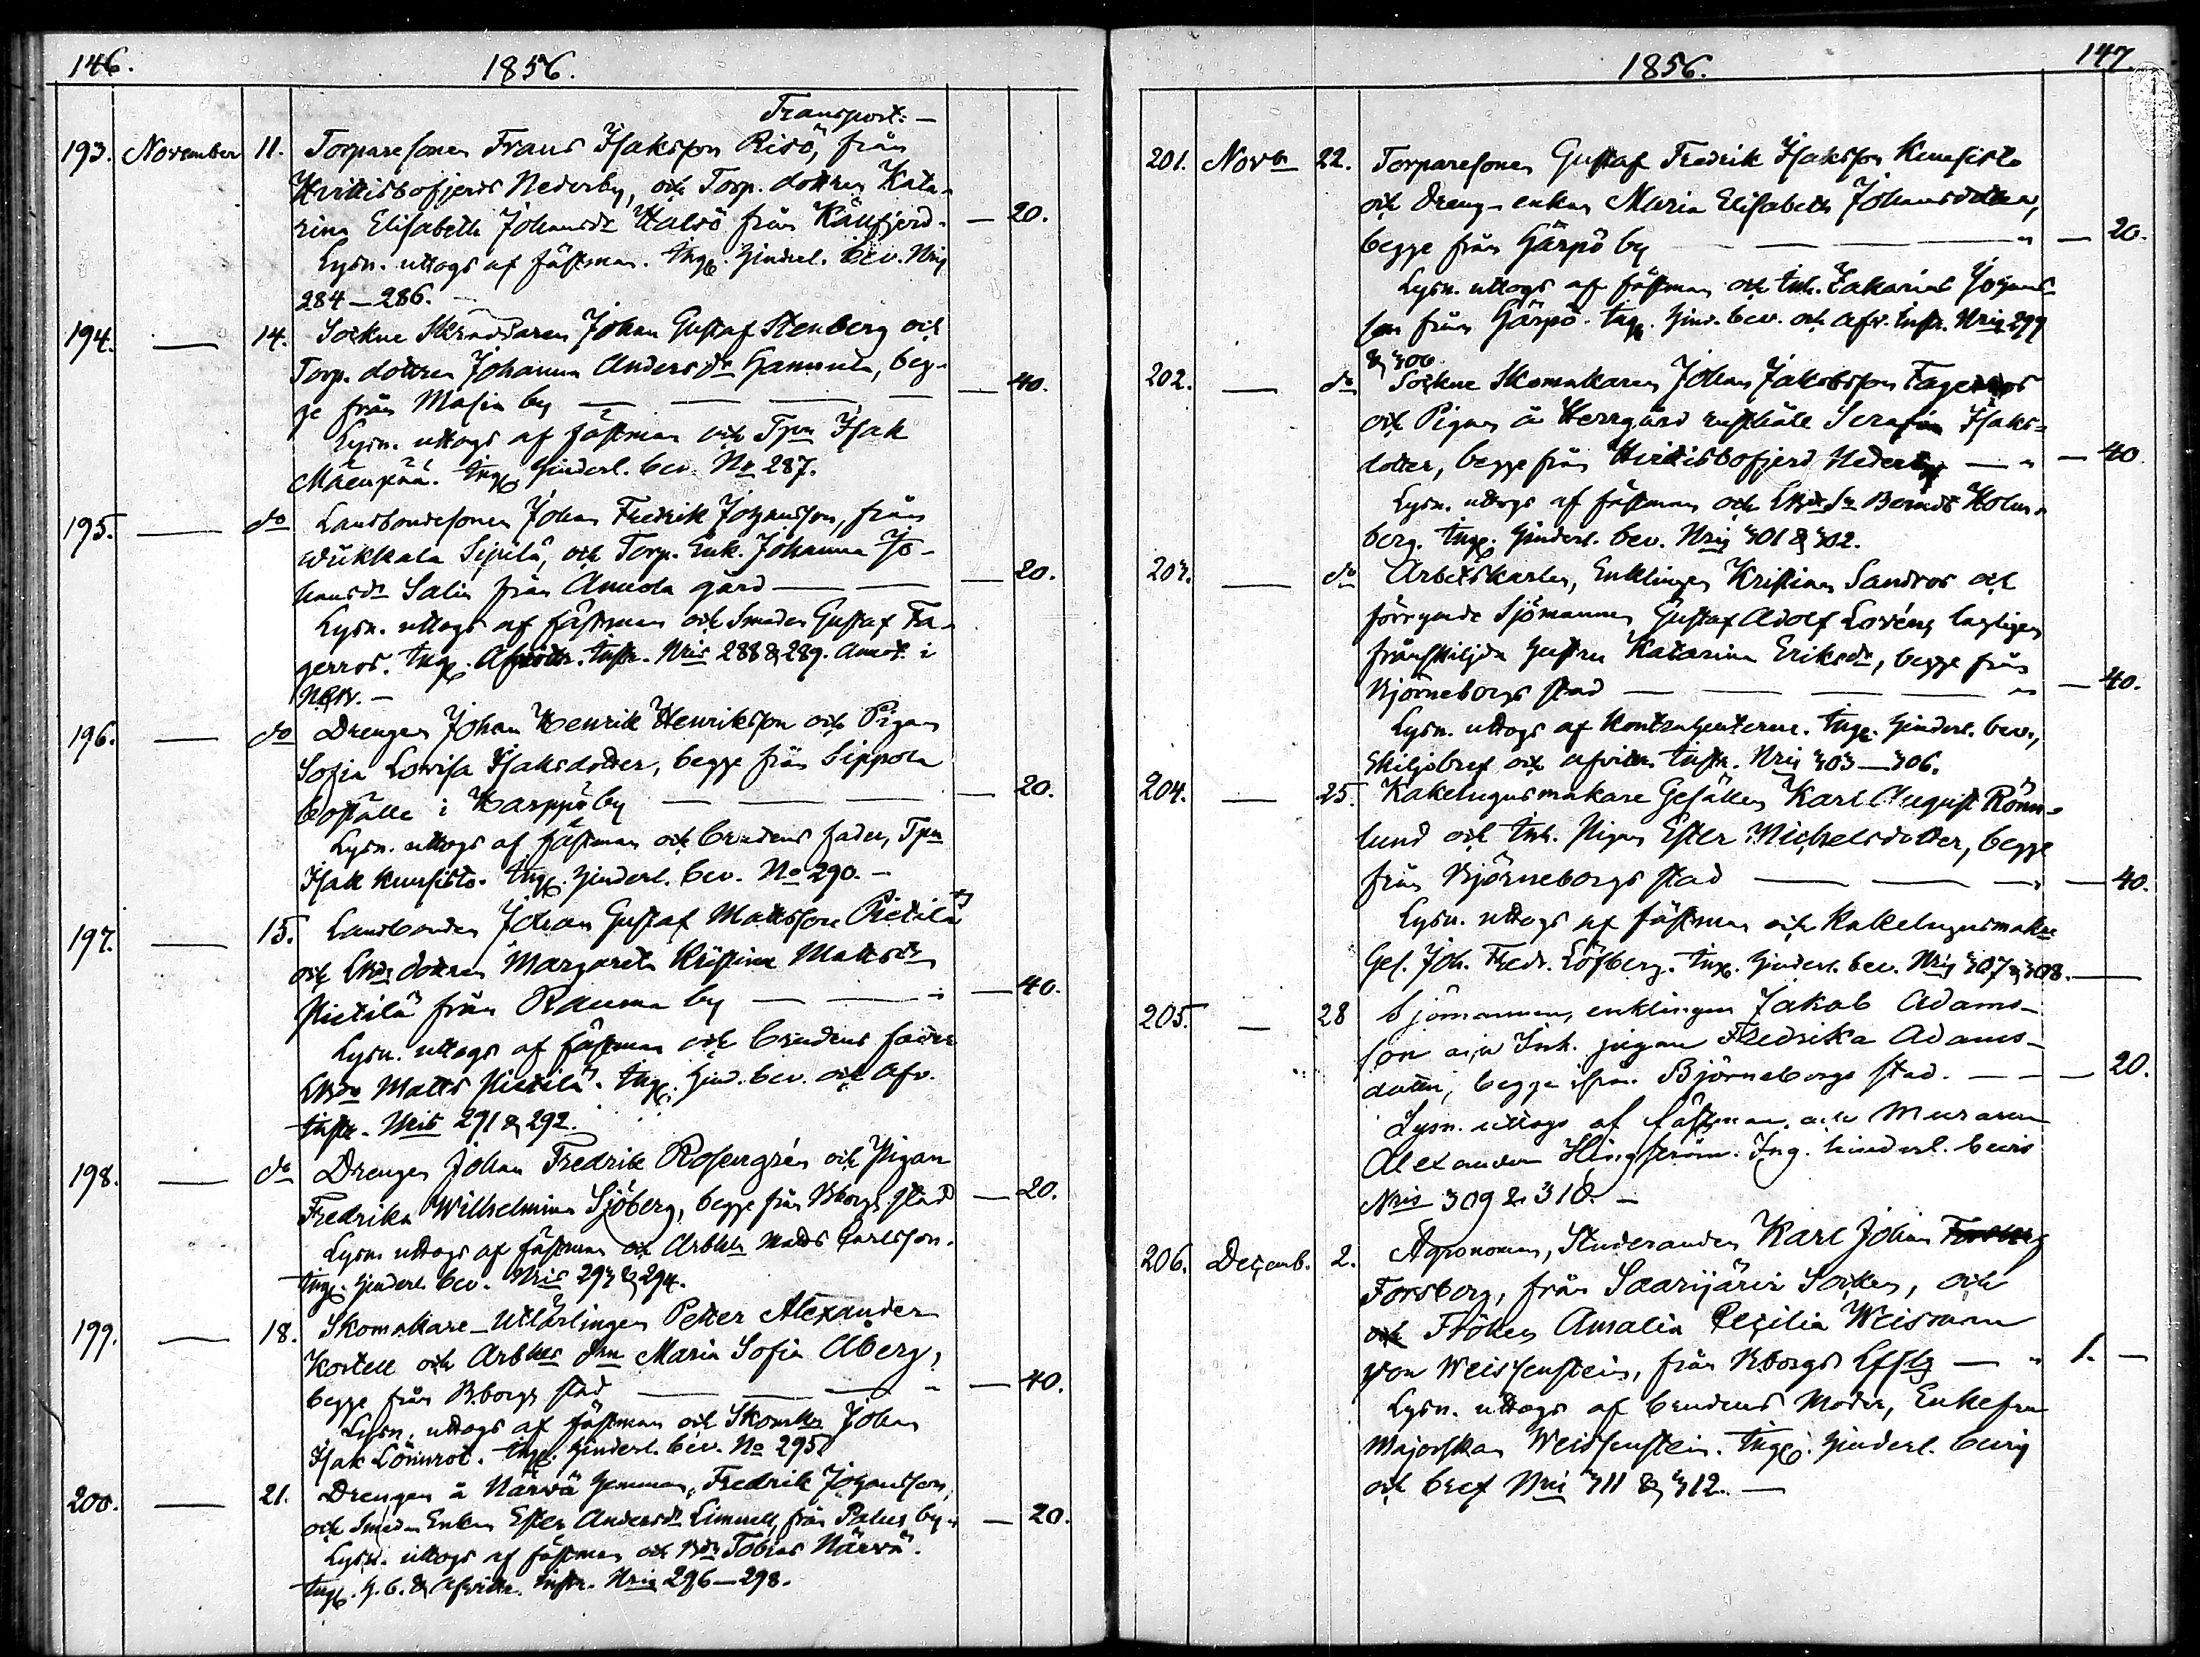 146.
1856.
Transport: —
193. November 11. Torparesonen Frans Isaksson Risö, från
Hvittisbofjerds Nederby, och Torp. dottren Kata-
rina Elisabeth Johansdr Halsö från Källfjerd. — 20.
Lysn. uttogs af fästman. Ingg. hinderl. bev. Nris
284—286.
194. — 14. Sockne Skräddaren Johan Gustaf Stenberg och
Torp. dottren Johanna Andersdr Gammels, beg-
ge från Masia by — — — — 40.
Lysn. uttogs af fästman och Tpn Isak
Mäenpää. Ingg. hinderl. bev. No 287.
195. — do Landbondesonen Johan Fredrik Johansson, från
Wiikkala Sipilä, och Torp. Enk. Johanna Jo-
hansdr Salin från Anneda gård — — — 20.
Lysn. uttogs af fästman och Smeden Gustaf Fa-
gerros. Ingg. Afvittr. Instr. Nris 288 & 289. Annot. i
196. — do Drengen Johan Henrik Henriksson och Pigan
Sofia Lovisa Isaksdotter, begge från Sippola
boställe i Harppöby — — — — 20.
Lysn. uttogs af fästman och brudens fader, Tpn
Isak Kuusisto. Ingg. hinderl. bev. No 290. —
197. — 15. Landbonden Johan Gustaf Mattsson Pietilä
och Lbds dottren Margareta Kristina Mattsdr
Pietilä från Rauma by — — — 40.
Lysn. uttogs af fästman och brudens fader
Lbdn Matts Pietilä. Ingg. hind. bev. och Afv.
Instr. Nris 291 & 292.
198. — do Drengen Johan Fredrik Rosengrén och Pigan
Fredrika Wilhelmina Sjöberg, begge från Bborgs stad — 20.
Lysn. uttogs af fästman och Arbkln Matts Carlsson.
Ingg. hinderl. bev. Nris 293 & 294.
199. — 18. Skomakare-Utlärlingen Petter Alexander
Kortell och Arbkls drn Maria Sofia Åberg,
begge från Bborgs stad — — — — 40.
Lysn. uttogs af fästman och Skomkn Johan
Isak Lönnrot. Ingg. hinderl. bev. No 295.
200. — 21. Drengen å Närvä hemman, Fredrik Johansson,
och Smeds Enkan Ester Andersdr Limnell, från Palus by — 20.
Lysn. uttogs af fästman och Bdn Tobias Närvä.
Ingg. h. b. & Afvittr. Instr. Nris 296—298.
147.
1856.
201. Novbr 22. Torparesonen Gustaf Fredrik Isaksson Kuusisto
och Dreng-enkan Maria Elisabeth Johansdotter,
begge från Gärpö by — — — — 20.
Lysn. uttogs af fästman och Inh. Zakarias Johans-
son från Gärpö. Ingg. hind. bev. och Afv. Instr. Nris 299
& 300.
202. — do Sockne Skomakaren Johan Jakobsson Fagerros
och Pigan å Herrgård rusthåll Serafia Isaks-
dotter, begge från Hvittisbofjerd Nederby — — 40
Lysn. uttogs af fästman och Lbds Sn Berndt Holm-
berg. Ingg. hinderl. bev. Nris 301 & 302.
203. — do Arbetskarlen, Enklingen Kristian Sandros och
förrymde Sjömannen Gustaf Adolf Lovéns lagligen
frånskiljda hustru Katarina Eriksdr, begge från
Björneborgs stad — — — — 40.
Lysn. uttogs af Kontrahenterne. Ingg. hinderl. bev.,
Skiljobref och afvittr. Instr. Nris 303—306.
204. — 25. Kakelugnsmakare Gesällen Karl August Rönn-
lund och Inh. Pigan Ester Michelsdotter, begge
från Björneborgs stad — — — — 40.
Lysn. uttogs af fästman och Kakelugnsmakre
Ges. Joh. Fredr. Löfberg. Ingg. hinderl. bev. Nris 307 & 308. —
205. — 28 Sjömannen, enklingen Jakob Adams-
son och Inh. pigan Fredrika Adams-
dotter, begge ifrån Björneborgs stad. — — 20.
Lysn. uttogs af fästman och Muraren
Alexander Hingström. Ing. hinderl. bevis
Nris 309 & 310. —
206. Decemb. 2. Agronomen, Studeranden Karl Johan Forsberg
Forsberg, från Saarijärvi Socken, och
och Fröken Amalia Cecilia Weismann
von Weissenstein, från Bborgs Lfflg — 1. —
Lysn. uttogs af brudens Moder, Enkefru
Majorskan Weissenstein. Ingg. hinderl. bevis
och bref Nris 311 & 312. —